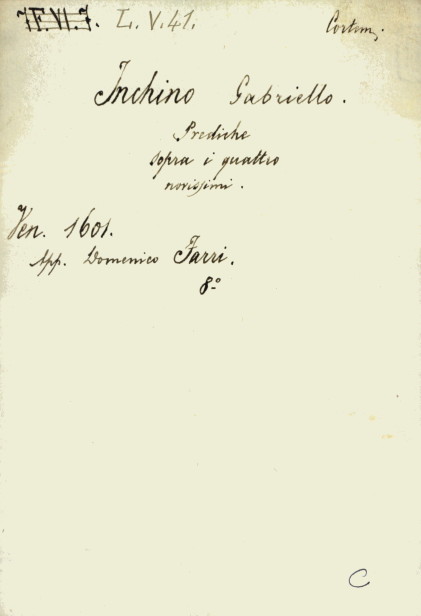 L. V. 41.
Inchino Gabriello.
Prediche
sopra i quattro
novissimi.
Ven. 1601.
App. Domenico Farri.
8º
C